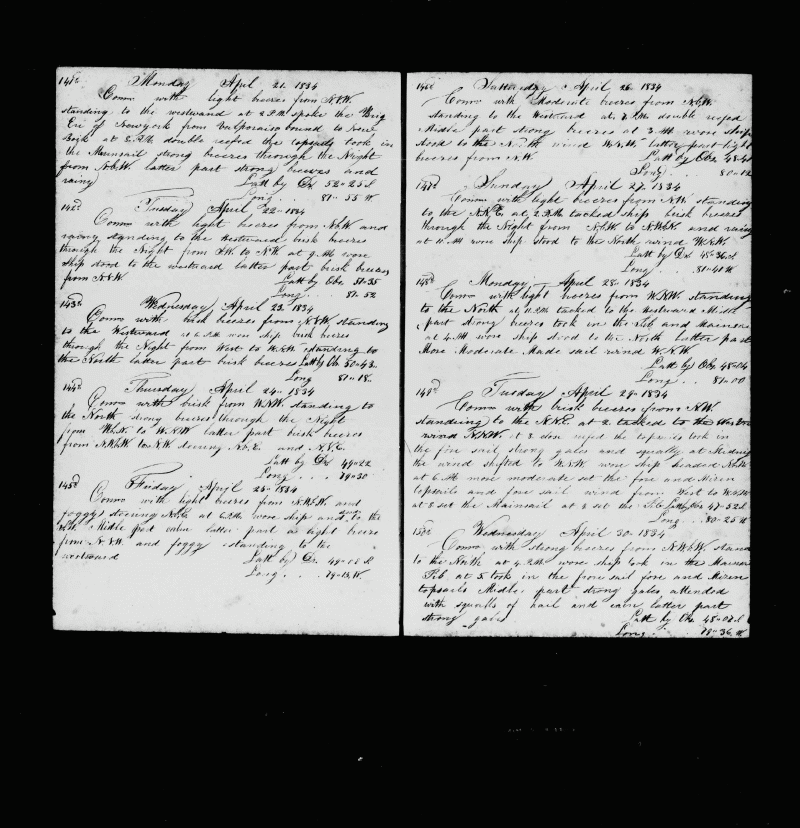 141st Monday April 21. 1834
Comes with light breezes from N.N.W.
standing to the westward at 2 P.M. spoke the Brig
of Newyork from Valporaiso bound to New
York at 6 P.M. double reefed the topsails took in
the Mainsail strong breezes through the Night
from latter part strong breezes and
rainy Latt by Dr 52=25 S
Long 81=55 W
142d Tuesday April 22 = 1834
Comes with light breezes from N.b.W. and
rainy standing to the Westward brisk breeze
through the Night from to N.W. at 9. A.M. wore
ship stood to the westward latter part brisk breezes
from Latt by Obs 51=35
Long 81=52
143d Wednesday April 23. 1834
Comes with brisk breezes from N.N.W. standing
to the Westward at 6 P.M. wore ship brisk breezes
through the Night from West to W.N.W. standing to
the North latter part brisk breezes Latt by Obs 50=43
Long 81=18
144th Thursday April 24 = 1834
Comes with brisk from W.N.W. standing to
the North strong breezes through the Night
from W.b.N. to W.N.W. latter part brisk breezes
from N.W.b.W. to N.W. steering N.b.E. and N.N.E.
Latt by Dr 49=22
Long . . . 79=30
145th Friday April 25 = 1834
Comes with light breezes from N.W.b.W. and
foggy steering at 6 P.M. wore ship and stood to the
Middle part calm latter part a light breeze
from and foggy standing to the
westward Latt by Dr. 49=08 S
Long . . . 79=13 W.
146th Satterday April 26 1834
Comes with Moderate breezes from N.b.W.
standing to the Westward at 7 P.M. double reefed
Middle part strong breezes at 3 A.M. wore ship
stood to the wind latter part light
breezes from N.W. Latt by Obs 48=40
Long . 80=12
147th Sunday April 27. 1834
Comes with light breezes from N.W. standing
to the N.N.E. at 2 P.M. tacked ship brisk breezes
through the Night from N.b.W to N.W.b.N. and rainy
at 11 A.M wore ship stood to the North wind W.N.W.
Latt by Dr 48=36 S
Long . 81=41 W
148th Monday April 28 = 1834
Comes with light breezes from W.N.W. standing
to the North at 11 P.M. tacked to the Westward Middle
part strong breezes took in the Jib and Mainsail
at 4 A.M wore ship stood to the North Latter part
More Moderate Made sail wind W.N.W.
Latt by Obs 48=04
Long . . 81=00
149th Tuesday April 29 = 1834
Comes with brisk breezes from N.W.
standing to the N.N.E. at 2 tacked to the
wind N.N.W. at 3 close reefed the topsails took in
the fore sail strong gales and squally at Midnight
the wind shifted to W.N.W. wore ship headed
at 6 A.M more moderate set the fore and Mizen
topsails and fore sail wind from West to W.N.W
at 8 set the Mainsail at 9 set the Jib Latt by Obs 47=52 S
Long . . 80=25 W
150th Wednesday April 30 = 1834
Comes with strong breezes from N.W.b.W. stand
to the North at 4 P.M. wore ship took in the Mainsail
Jib at 5 took in the fore sail fore and Mizen
topsails Middle part strong gales attended
with squalls of hail and rain latter part
strong gales Latt by Obs 48=07 S
Long . 79=36 W